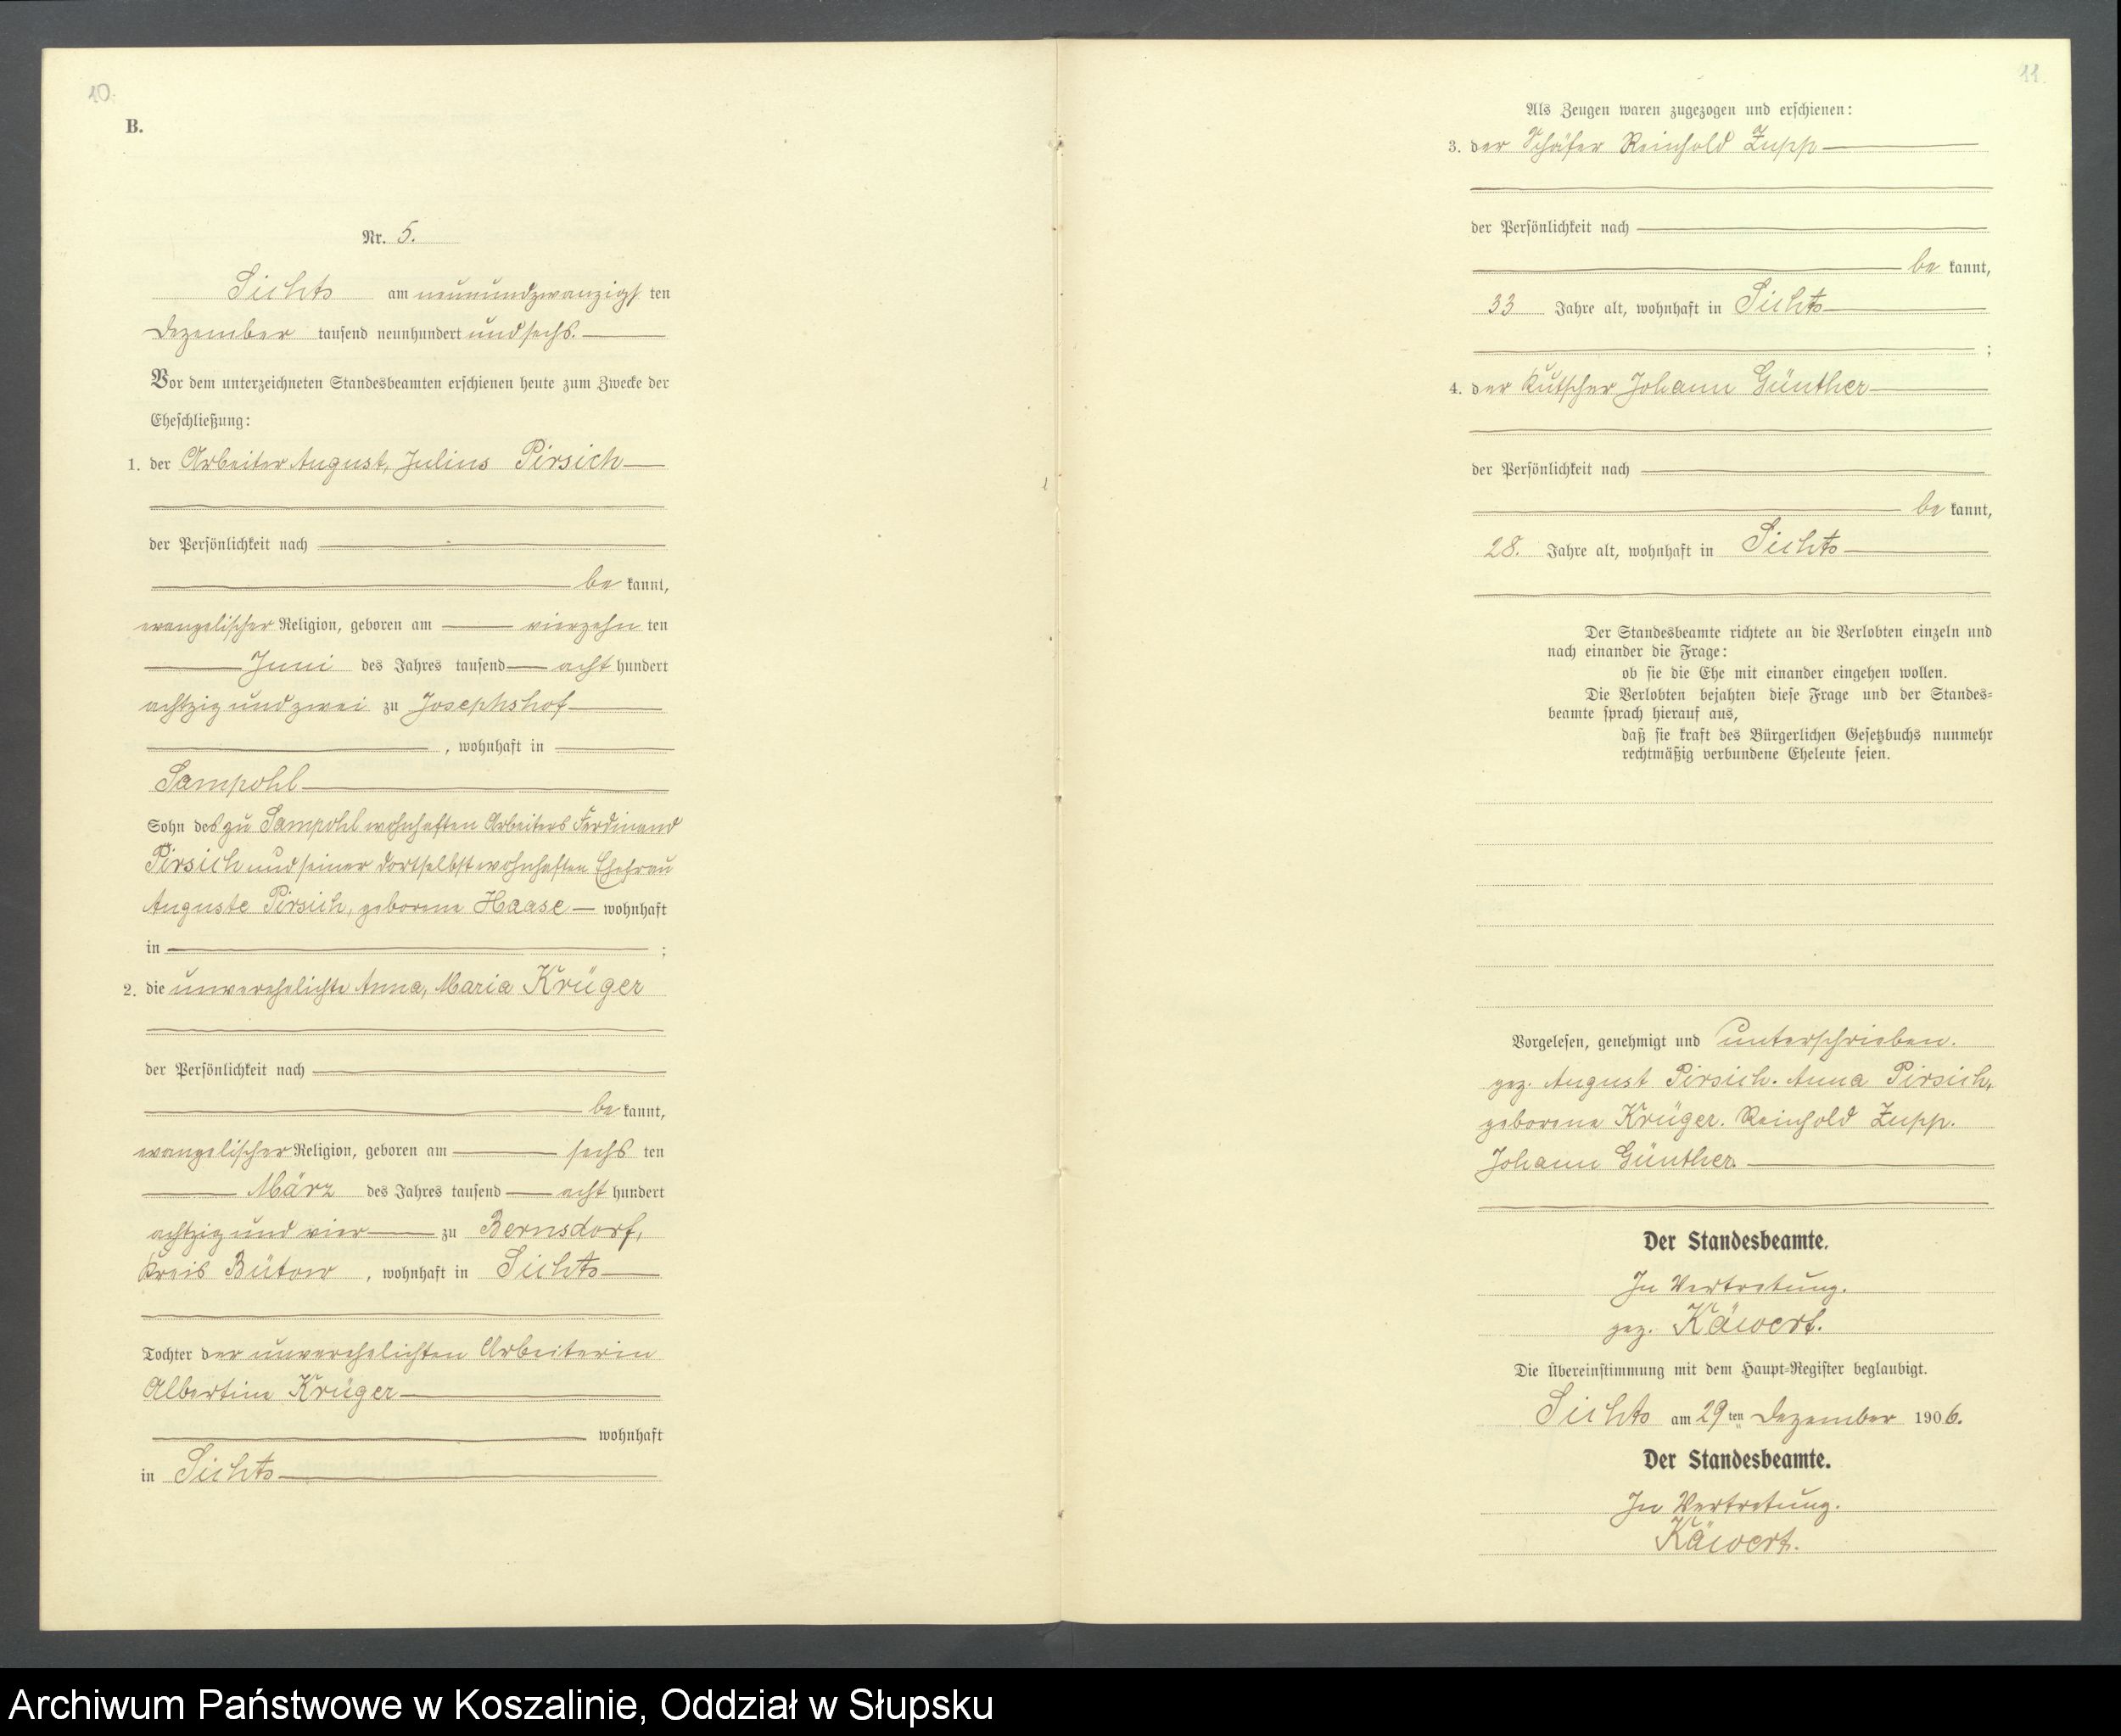 10.
B.
Nr. 5.
Sichts am neunundzwanzigsten
Dezember tausend neunhundert und sechs.
Vor dem unterzeichneten Standesbeamten erschienen heute zum Zwecke der
Eheschließung:
1. der Arbeiter August, Julius Pirsich
der Persönlichkeit nach
be kannt,
evangelischer Religion, geboren am vierzehn ten
Juni des Jahres tausend acht hundert
achtzig und zwei zu Josephshof
, wohnhaft in
Sampohl
Sohn des zu Sampohl wohnhaften Arbeiters Ferdinand
Pirsich und seiner dortselbst wohnhaften Ehefrau
Auguste Pirsich, geborene Haase wohnhaft
in ;
2. die unverehelichte Anna, Maria Krüger
der Persönlichkeit nach
be kannt,
evangelischer Religion, geboren am sechs ten
März des Jahres tausend acht hundert
achtzig und vier zu Bernsdorf,
Kreis Bütow, wohnhaft in Sichts
Tochter der unverehelichten Arbeiterin
Albertine Krüger
wohnhaft
in Sichts
11.
Als Zeugen waren zugezogen und erschienen:
3. der Schäfer Reinhold Zupp
der Persönlichkeit nach
be kannt,
33 Jahre alt, wohnhaft in Sichts
;
4. der Kutscher Johann Günther
der Persönlichkeit nach
be kannt,
28. Jahre alt, wohnhaft in Sichts
Der Standesbeamte richtete an die Verlobten einzeln und
nach einander die Frage:
ob sie die Ehe mit einander eingehen wollen.
Die Verlobten bejahten diese Frage und der Standes-
beamte sprach hierauf aus,
daß sie kraft des Bürgerlichen Gesetzbuchs nunmehr
rechtmäßig verbundene Eheleute seien.
Vorgelesen, genehmigt und unterschrieben.
gez. August Pirsich. Anna Pirsich,
geborene Krüger. Reinhold Zupp.
Johann Günther.
Der Standesbeamte.
In Vertretung.
gez. Käwert.
Die Übereinstimmung mit dem Haupt-Register beglaubigt.
Sichts am 29ten Dezember 1906.
Der Standesbeamte.
In Vertretung.
Käwert.
Archiwum Państwowe w Koszalinie, Oddział w Słupsku